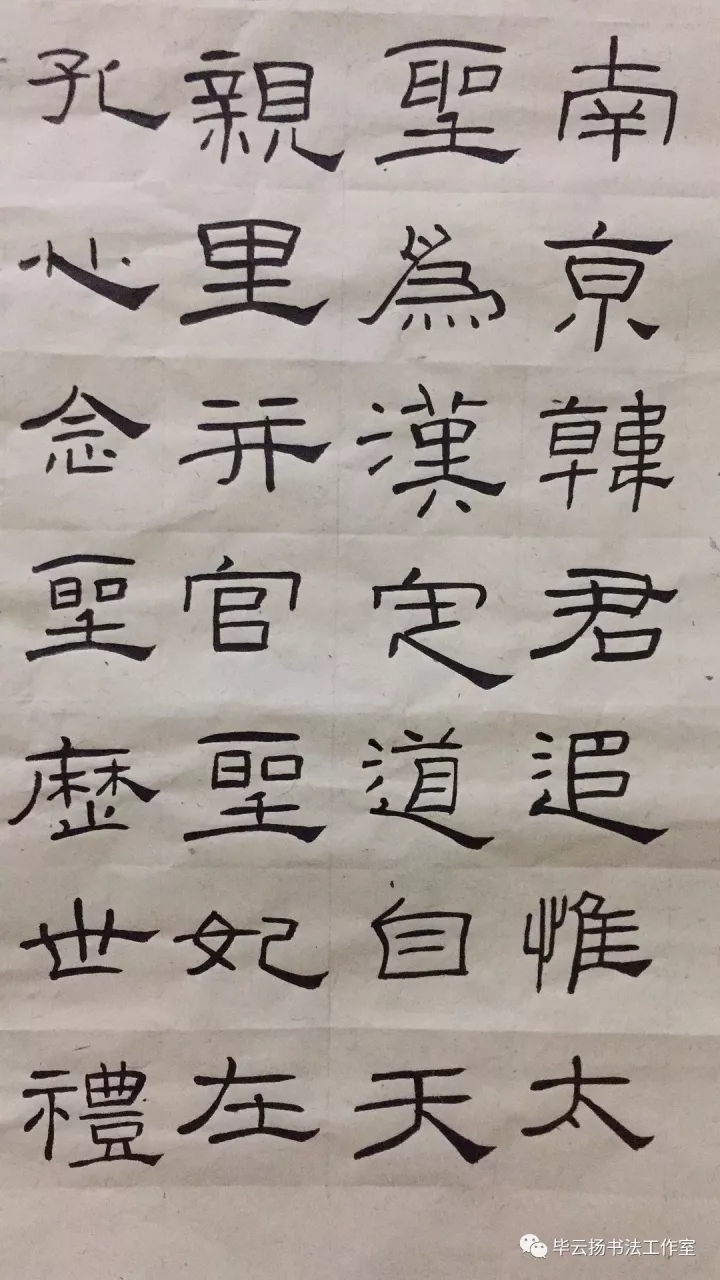 南京韓君追惟太
聖為漢定道自天
親里并官聖妃在
孔心念聖歷世禮
毕云扬书法工作室